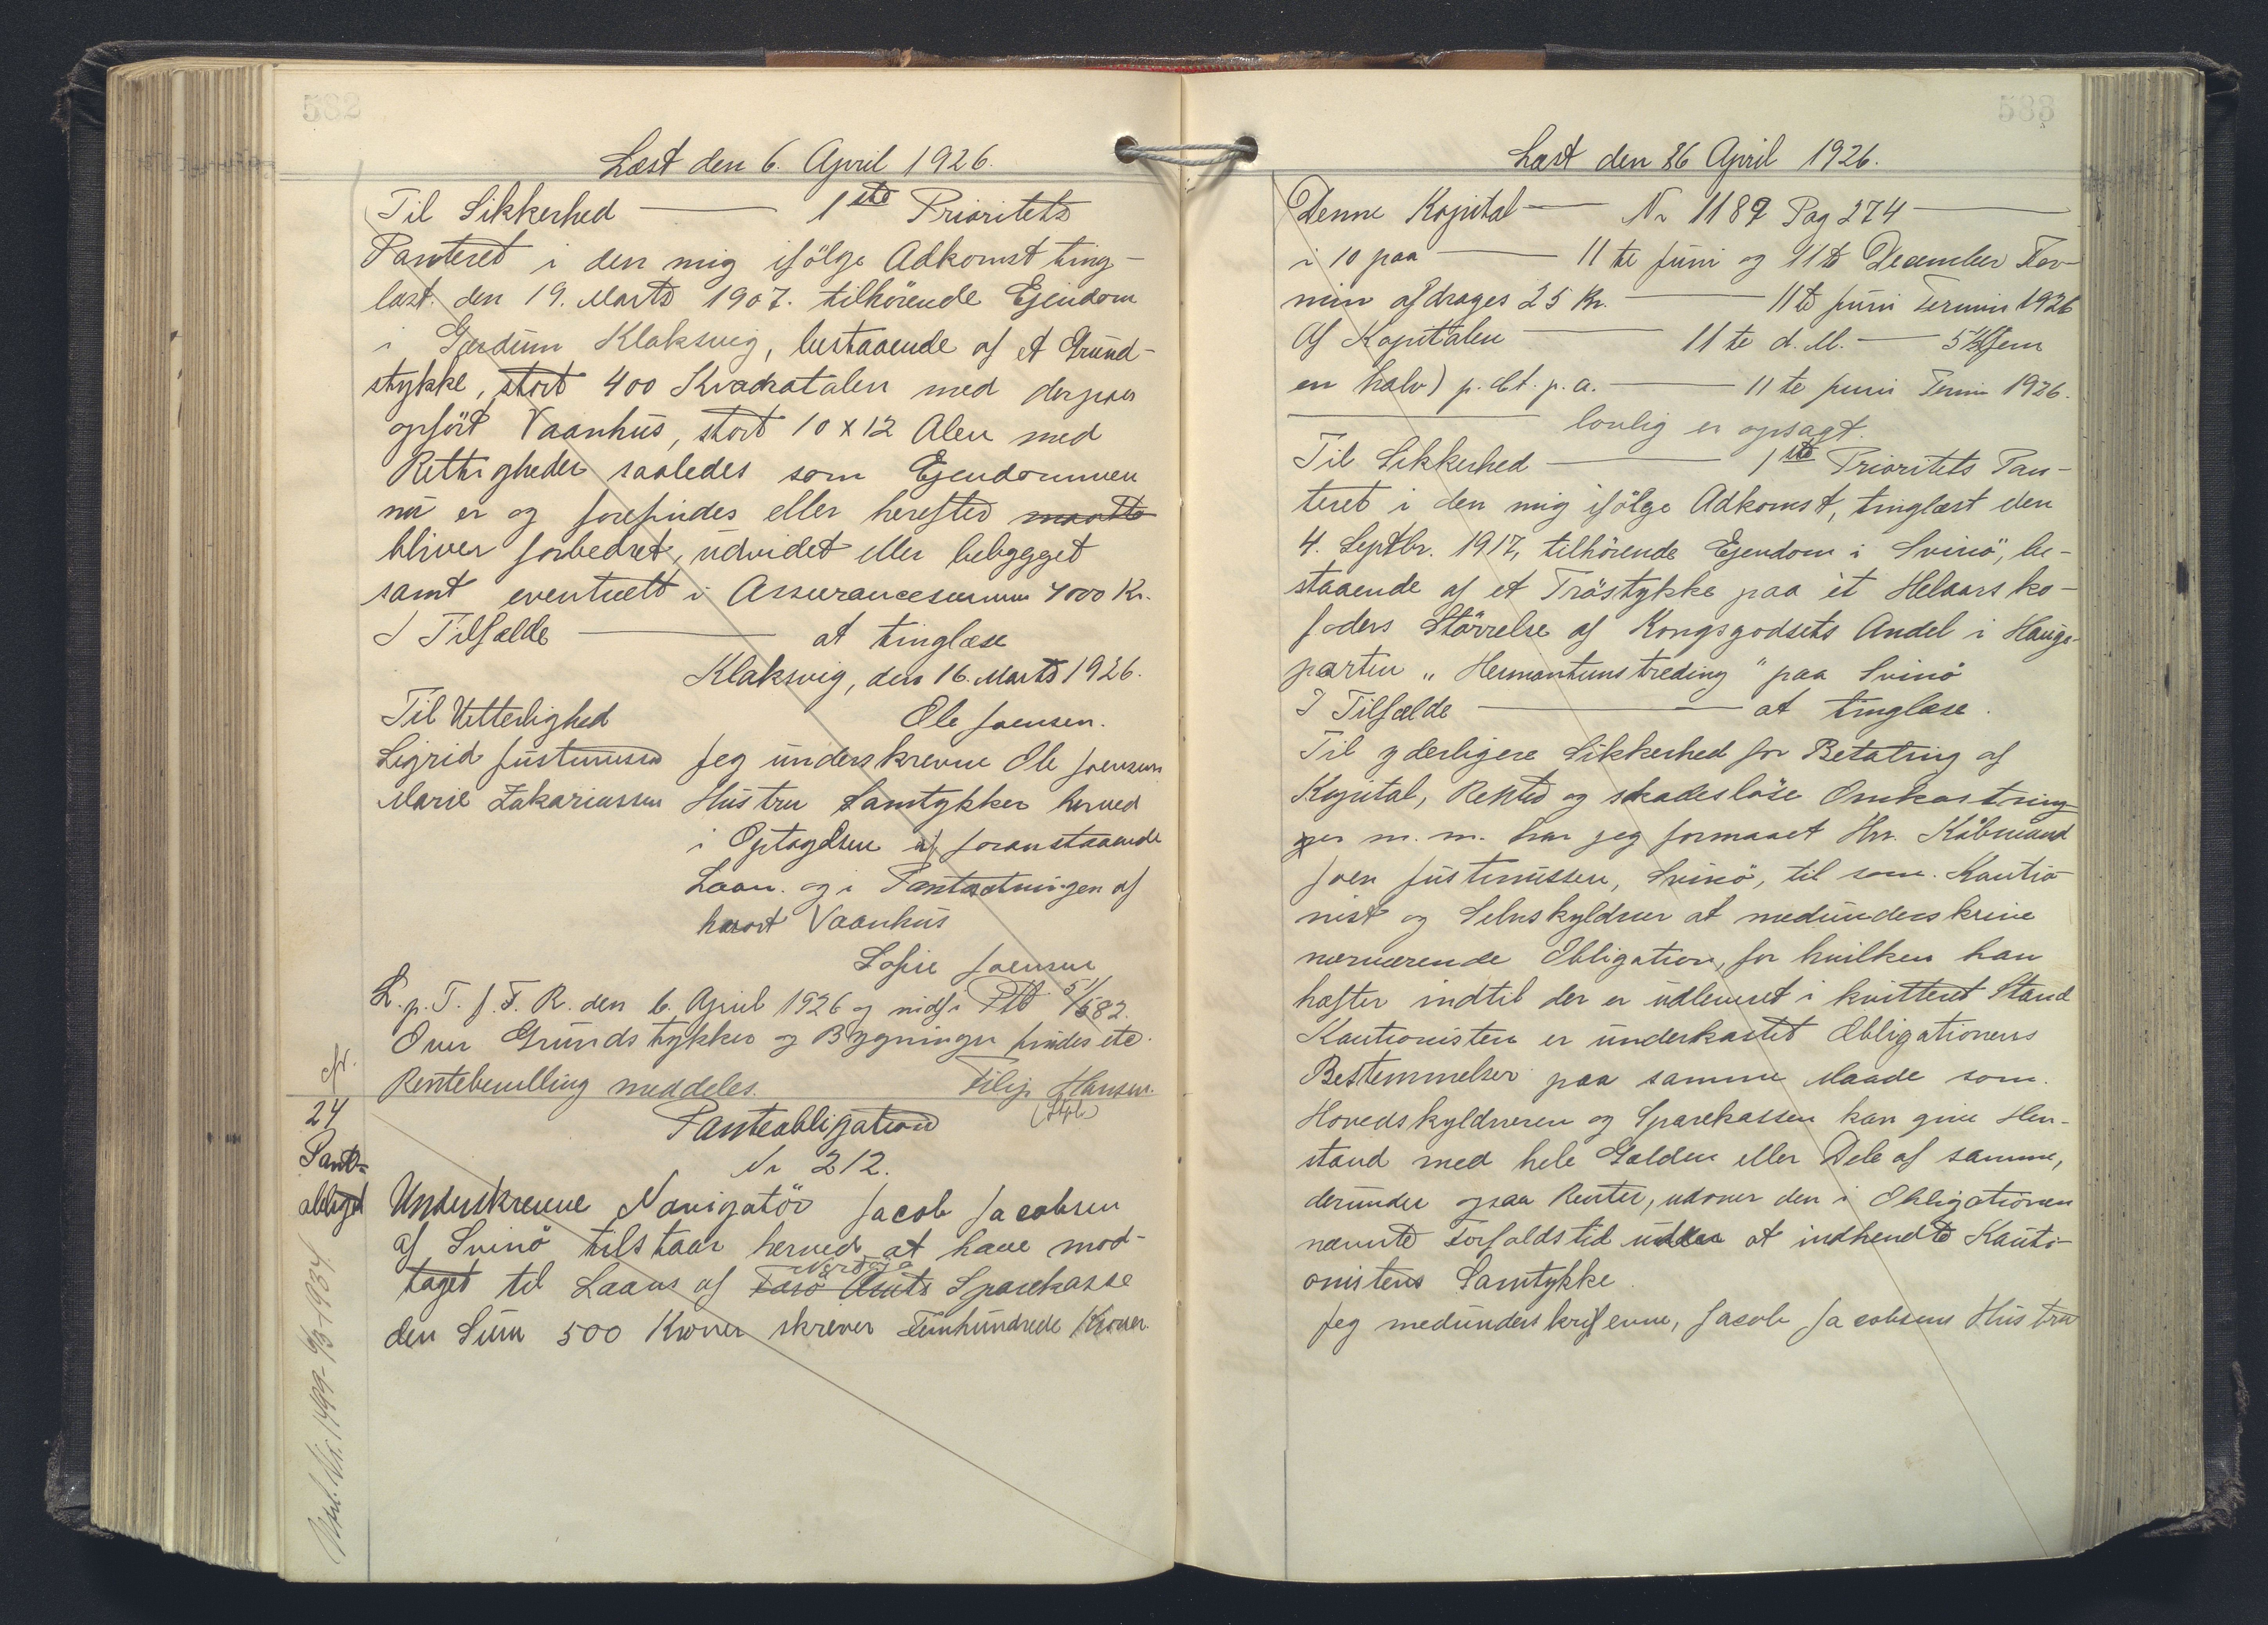 582
Læst den 6. April 1926.
Til Sikkerhed — 1ste Prioritets
Panteret i den mig ifölge Adkomst ting-
læst den 19. Marts 1907. tilhörende Ejendom
i Gærdum Klaksvig, bestaaende af et Grund-
stykke, stort 400 Kvadratalen med derpaa
opfört Vaanhus, stort 10 x 12 Alen med
Rettigheder saaledes som Ejendommen
nu er og forefindes eller herefter maatte
bliver forbedret, udvidet eller bebygget
samt eventuelt i Assurancesummen 4000 Kr.
I Tilfælde — at tinglæse
Klaksvig, den 16. Marts 1926.
Til Vitterlighed Ole Joensen.
Sigrid Justinussen Jeg underskrevne Ole Joensens
Marie Zakariassen Hustru Samtykker herved
i Optagelsen af foranstaaende
Laan og i Pantsætningen af
hvort Vaanhus
Sofie Joensen
L. p. T. f. F. R. den 6. April 1926 og indf i Ptb 51/582.
Over Grundstykker og Bygninger findes etc.
Rentebevilling meddeles. Filip Hansen.
(fgt)
cfr.
24
Pant=
obligat
Panteobligation
Nr 212.
Underskrevne Navigatör Jacob Jacobsen
af Svinö tilstaar herved at have mod-
Norderø
taget til Laans af Færö Amts Sparekasse
den Sum 500 Kroner skriver Femhundrede Kroner.
583
Læst den 26 April 1926.
Denne Kapital — Nr 1189 Pag 274 —
i 10 paa — 11te Juni og 11te December Ter-
min afdrages 25 Kr. — 11te Juni Termin 1926
Af Kapitalen — 11te d. M. — 5½ (fem
en halv) p. Ct. p. a. — 11te Juni Termin 1926.
— lovlig er opsagt.
Til Sikkerhed — 1ste Prioritets Pan-
teret i den mig ifölge Adkomst, tinglæst den
4. Septbr. 1917, tilhörende Ejendom i Svinö, be-
staaende af et Tröstykke paa et Helaars ko-
foders Störrelse af Kongsgodsets Andel i Hauge-
parten „Hermantunstreding" paa Svinö
I Tilfælde — at tinglæse.
Til yderligere Sikkerhed for Betaling af
Kapital, Renter og skadeslöse Omkostning
ger m. m. har jeg formaaet Hr. Köbmand
Joen Justinussen, Svinö, til som Kautio
nist og Selvskyldner at medunderskrive
nærværende Obligation, for hvilken han
hæfter indtil der er udleveret i kvitteret Stand
Kautionisten er underkastet Obligationens
Bestemmelser paa samme Maade som
Hovedskyldneren og Sparekassen kan give Hen-
stand med hele Gælden eller Dele af samme,
derunder ogsaa Renter, udover den i Obligationen
nævnte Forfaldstid uden at indhendte Kauti-
onistens Samtykke.
Jeg medunderskrifevne, Jacob Jacobsens Hustru